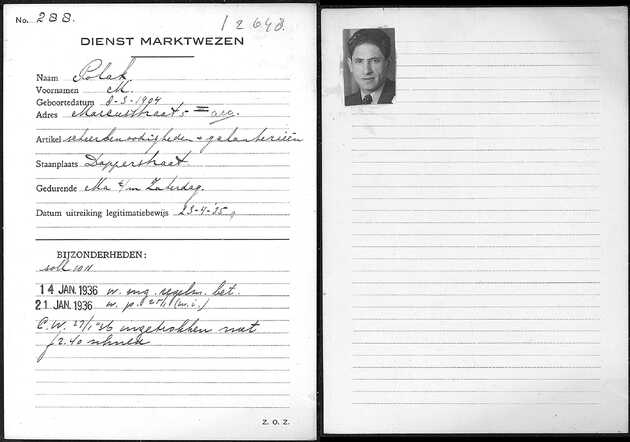 No. 288.
12648.
DIENST MARKTWEZEN
Naam Polak
Voornamen M.
Geboortedatum 8-3-1904
Adres Marcusstraat 5
Artikel scheerbenoodigheden + galanterieën
Staanplaats Dapperstraat.
Gedurende Ma t/m Zaterdag.
Datum uitreiking legitimatiebewijs 23-4-'35
BIJZONDERHEDEN:
soll 1011
14 JAN. 1936 w. mg. regelm. bet.
21 JAN. 1936 w. p.
C.W. 27/1 '36 ingetrokken met
f 2.40 schuld
Z. O. Z.